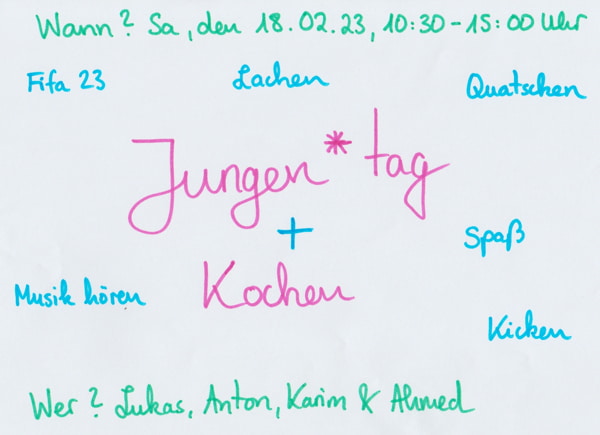 Wann? Sa, den 18.02.23, 10:30-15:00 Uhr
Fifa 23 Lachen Quatschen
Jungen*tag
+
Spaß
Kochen
Musik hören
Kicken
Wer? Lukas, Anton, Karim & Ahmed